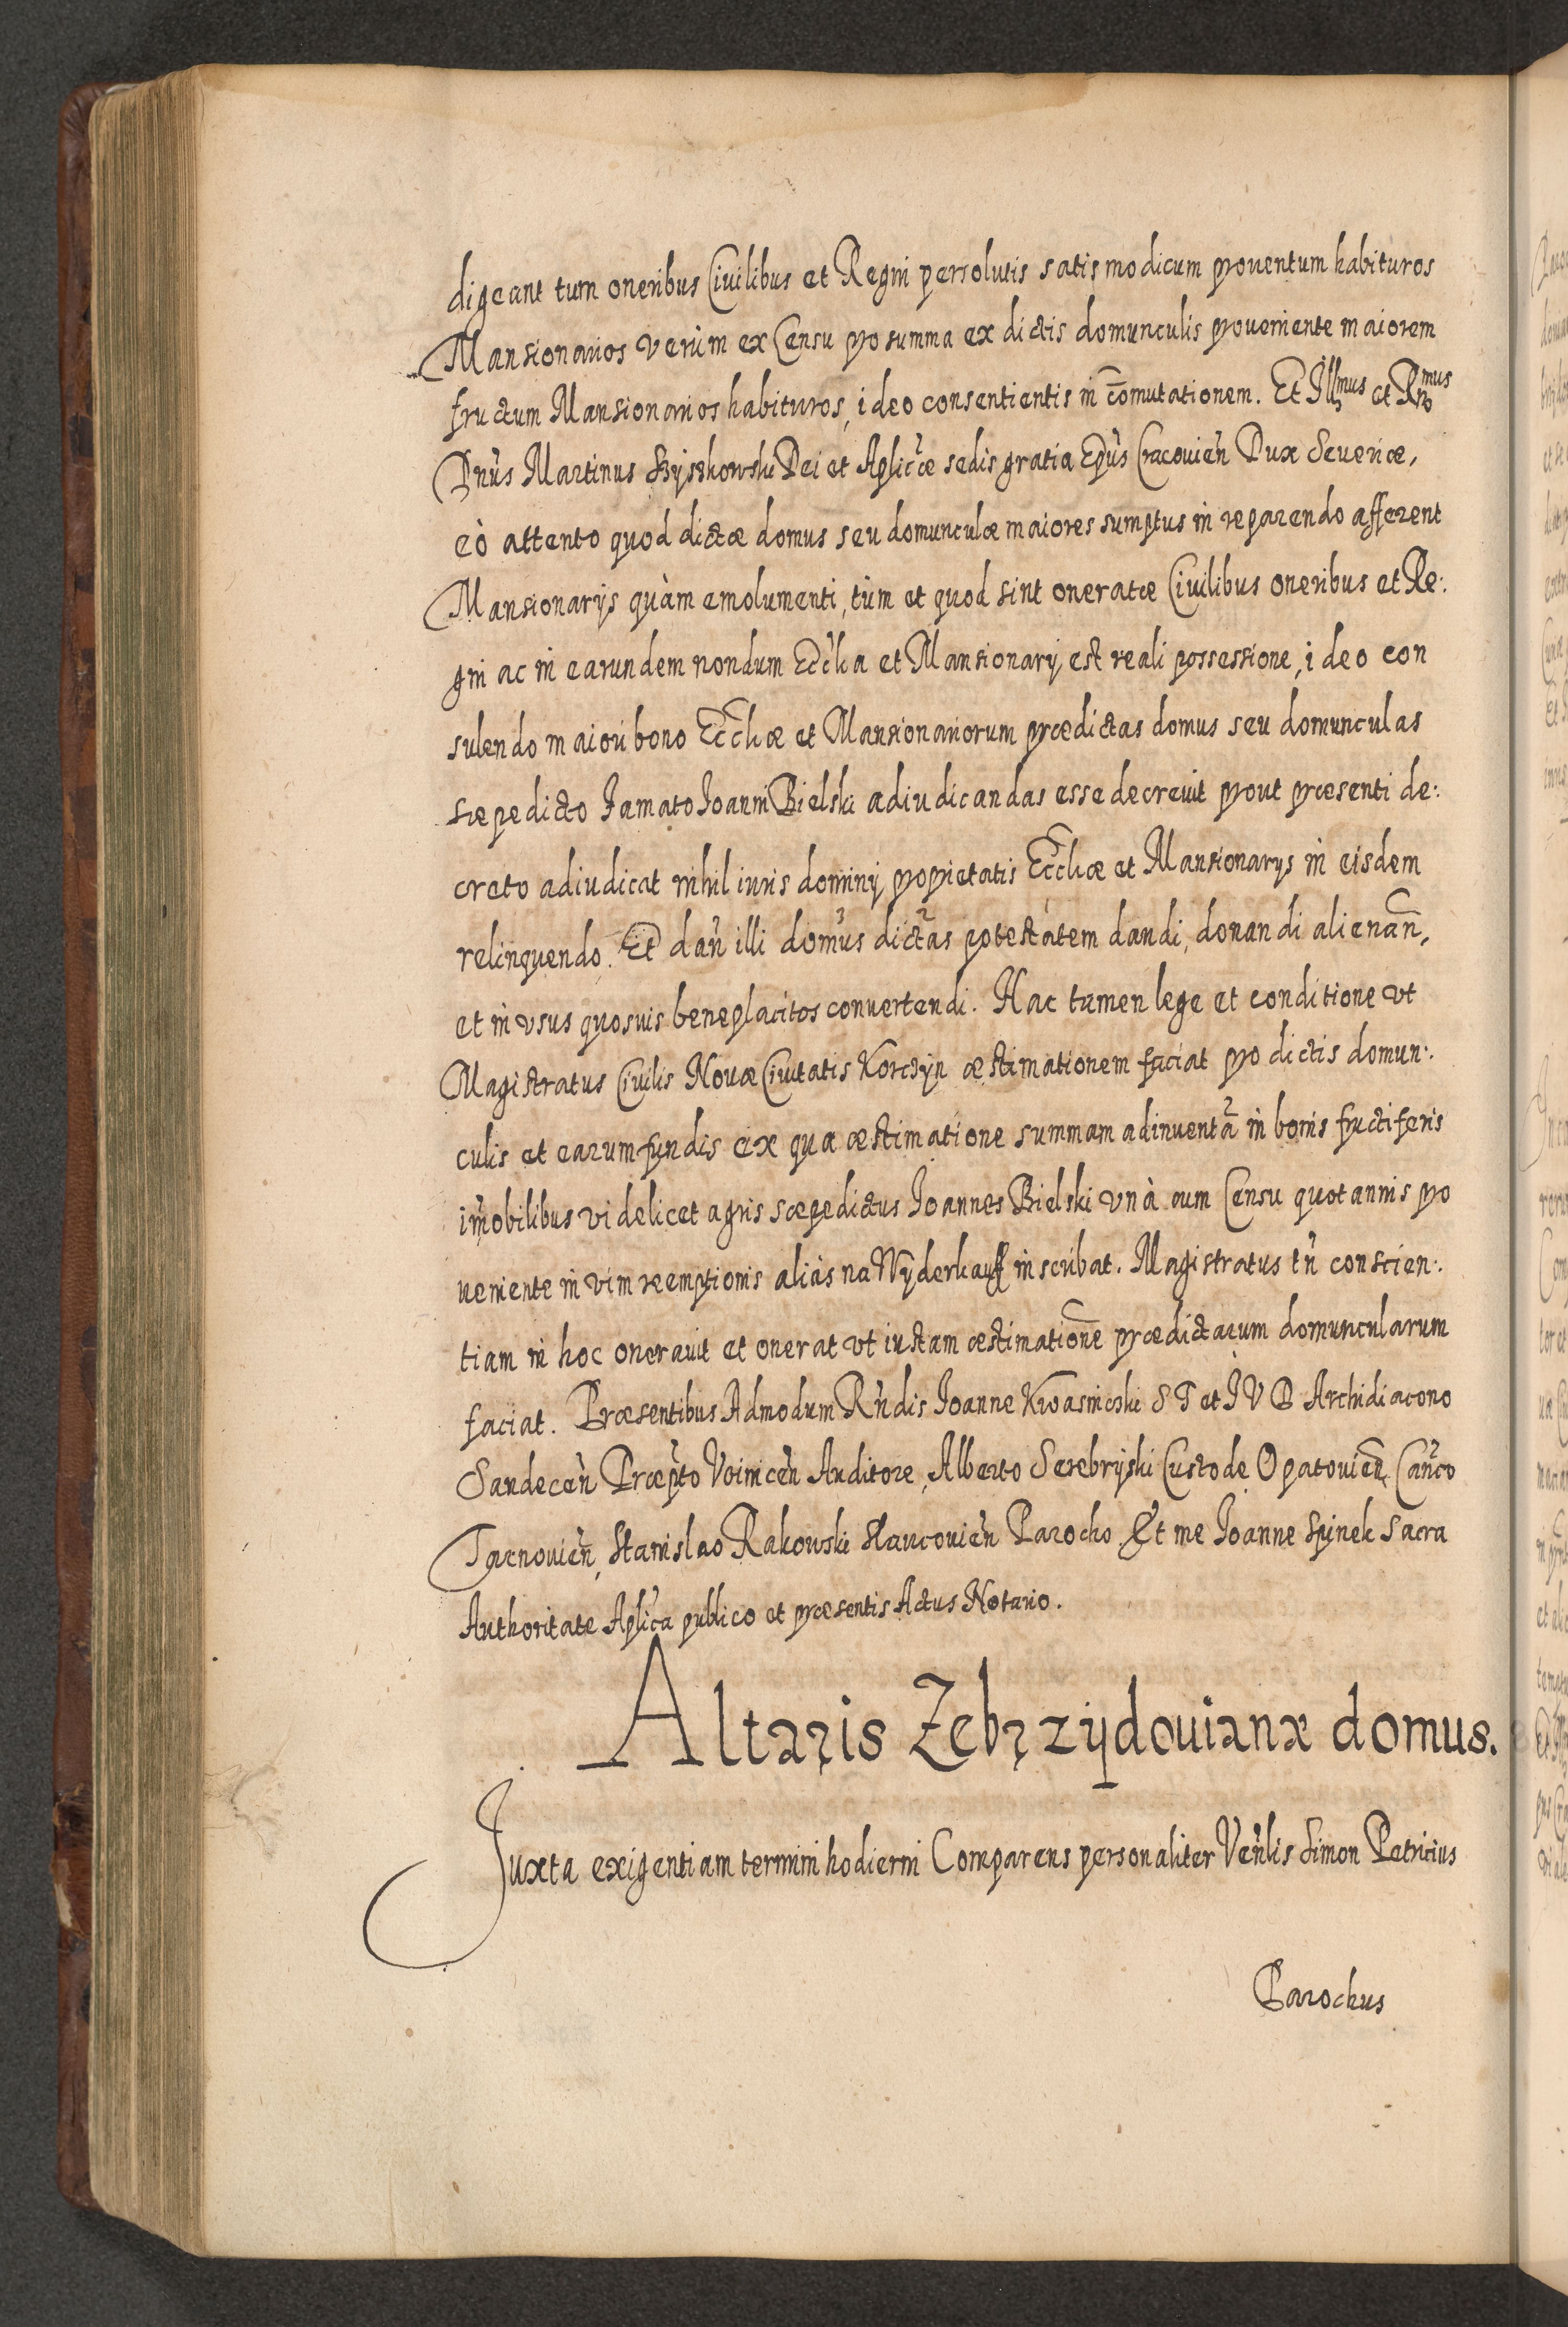 digeant tum oneribus Ciuilibus et Regni persolutis satis modicum prouentum habituros
Mansionarios verùm ex Censu pro summa ex dictis domunculis proueniente maiorem
fructum Mansionarios habituros, ideo consentientis in com̃utationem. Et Illmus et Rmus
Dnus Martinus Szyszkowski Dei et Aplicæ sedis gratia Epus Cracouien Dux Seueriæ,
eò attento quod dictæ domus seu domunculæ maiores sumptus in reparendo afferent
Mansionarijs quàm emolumenti, tùm et quod sint oneratæ Ciuilibus oneribus et Re:
gni ac in earundem nondum Ecclia et Mansionarij est reali possessione, ideo con
sulendo maiori bono Eccliæ et Mansionariorum prædictas domus seu domunculas
sæpedicto Famato Joanni Bielski adiudicandas esse decreuit prout præsenti de:
creto adiudicat nihil iuris dominij proprietatis Eccliæ et Mansionarijs in eisdem
relinquendo. Et dañ illi domus dictas potestatem dandi, donandi alienañ,
et in vsus quosuis beneplacitos conuertendi. Hac tamen lege et conditione vt
Magistratus Ciuilis Nouæ Ciuitatis Korczyn æstimationem faciat pro dictis domun:
culis et earum fundis ex qua æstimatione summam adinuentã in bonis fructiferis
im̃obilibus videlicet agris sæpedictus Joannes Bielski vnà cum Censu quotannis pro
ueniente in vim reemptionis aliàs na Wyderkauff inscribat. Magistratus tñ conscien:
tiam in hoc onerauit et onerat vt iustam æstimatione prædictarum domuncularum
faciat. Præsentibus Admodum Rndis Joanne Kwasnicski S T et I V D Archidiacono
Sandeceñ Præpto Voiniceñ Auditore, Alberto Serebryski Custode Opatouieñ Canco
Tarnouieñ, Stanislao Rakowski Slaucouieñ Parocho Et me Joanne Spinek Sacra
Authoritate Aplica publico et præsentis Actus Notario.
Altaris Zebrzydouianæ domus.
Juxta exigentiam termini hodierni Comparens personaliter Venlis Simon Petricius
Parochus